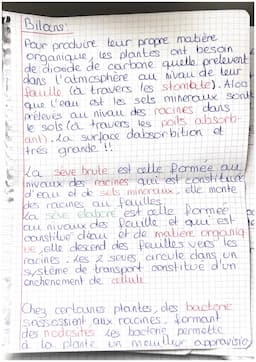 Bilans:
Pour produire leur propre matière
organique, les plantes ont besoin
de dioxide de carbone quelle prelevent
dans l'atmosphère au niveau de leur
feuille (à travers les stomate). Alor
que l'eau est les sels mineraux sont
prélevés au niveau des racines dans
le sols (à travers les poils absorb-
ant). La surface d'absorbition et
très grande !!
La seve brute est celle formee au
nivaux des racines qui est constituée
d'eau et de sels mineraux, elle monte
des racines au feuilles.
La sève élaboré est celle formée
au niveaux des feuille et qui est
constitué d'eau et de matière organiq
ue, elle descend des feuilles vers les
racines. Les 2 seves, circule dans un
système de transport constitué d'un
enchènement de cellule
Chez certaines plantes, des bactérie
s'inssossient aux racines, formant
des nodosites les bactérie, permette
à la plante un meilleur approvisio